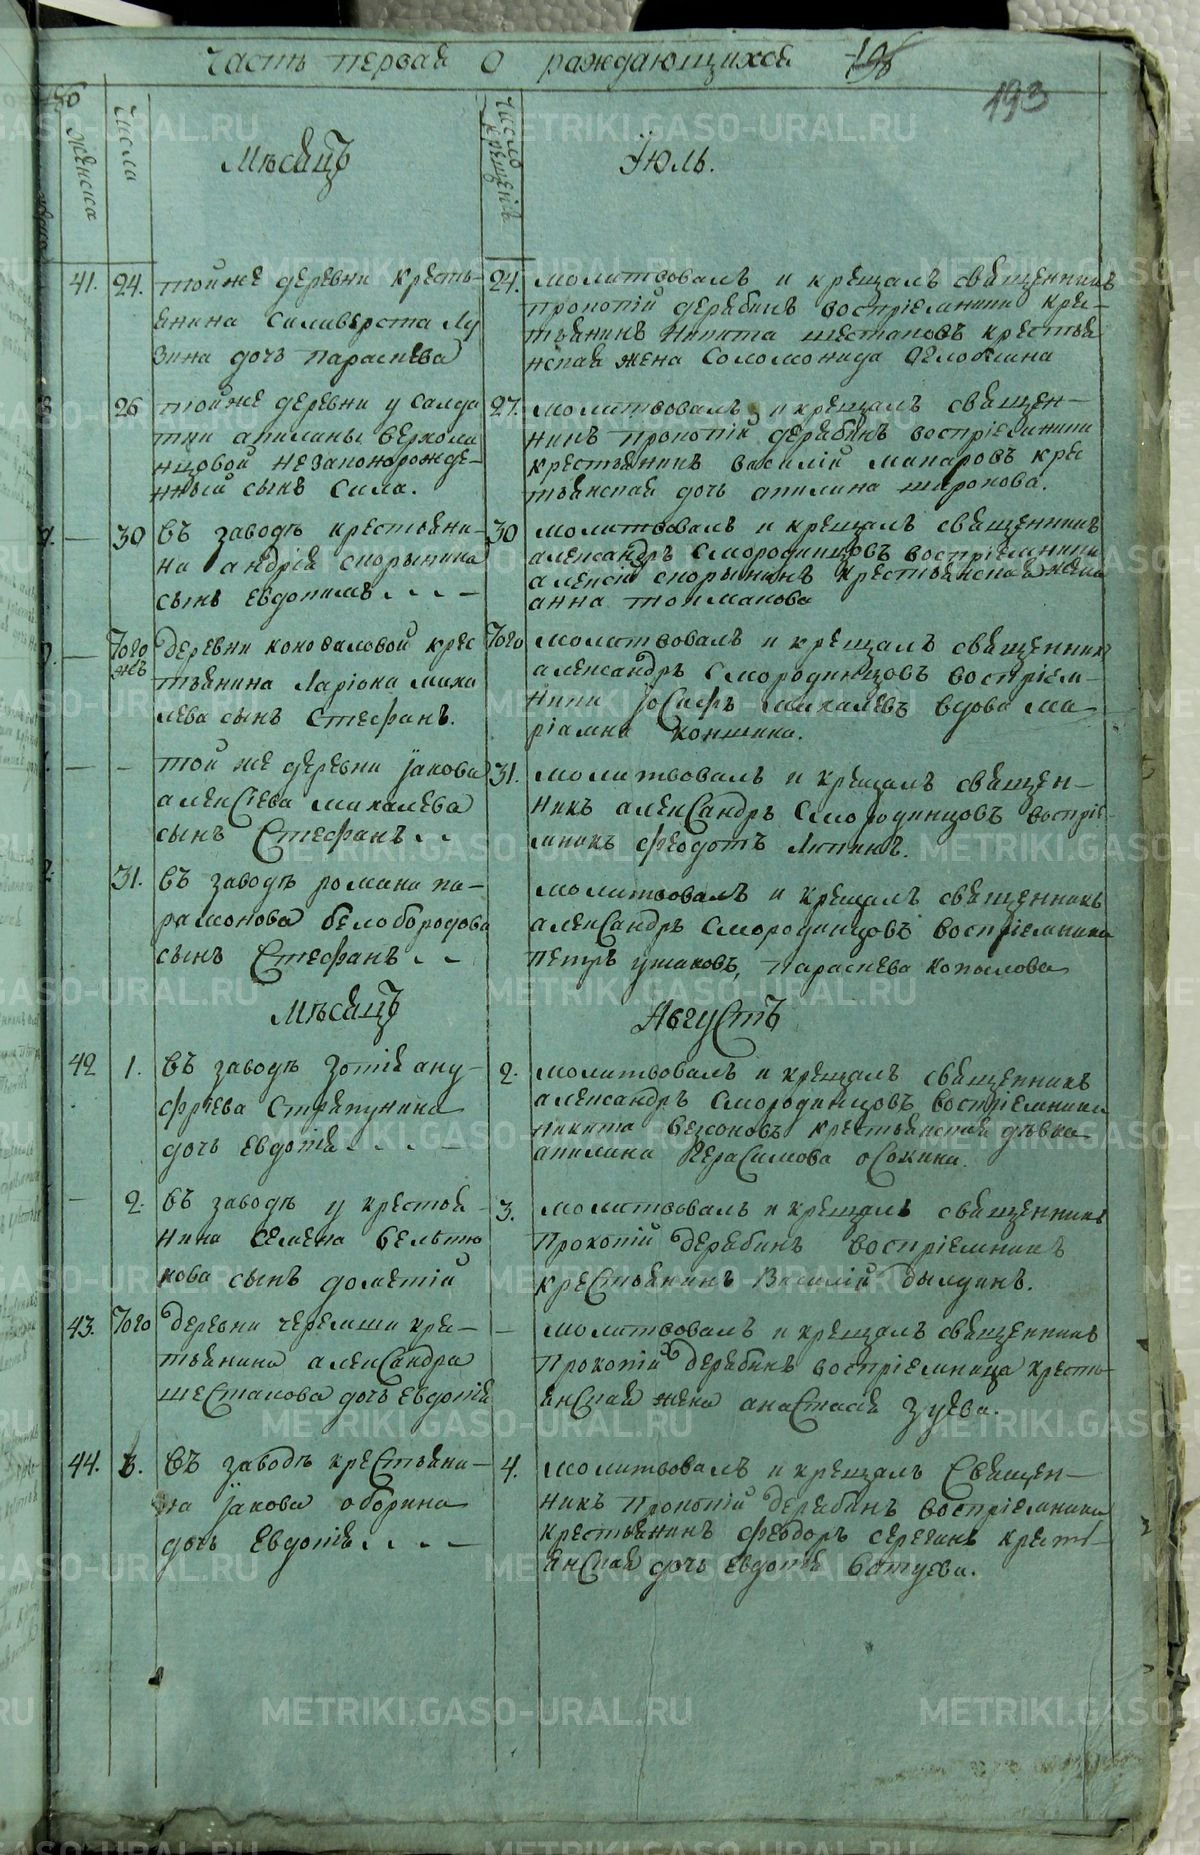 часть первая о раждающихся
193
женска
числа
Мѣсяцъ
число крещенiя
Iюль.
41.
24.
тойже деревни кресть-
янина Силиверста Лу
зина дочь параскева
24.
молитвовалъ и крещалъ священникъ
прокопiй дерябинъ воспрiемники крес-
тьянинъ Никита шестаковъ крестья
нская жена Соломонида
26
тойже деревни у салда
тки акилины верхола
нцовой незаконорожде-
нный сынъ Сила.
27.
молитвовалъ и крещалъ священ-
никъ прокопiй дерябинъ воспрiемники
крестьянинъ василiй макаровъ крес
тьянская дочь акилина широкова.
30
въ заводѣ крестьяни-
на андрiя скорынина
сынъ евдокимъ
30
молитвовалъ и крещалъ священникъ
александръ Смородинцовъ воспрiемники
алексiй скорынинъ крестьянская жена
анна токмакова
Того же
деревни коноваловой крес
тьянина Ларiона миха
лева сынъ Стефанъ.
Того
молитвовалъ и крещалъ священникъ
александръ Смородинцовъ воспрiем-
ники iосифъ михалевъ вдова ма-
рiамна коншина.
той же деревни iакова
алексiева михалева
сынъ Стефанъ
31.
молитвовалъ и крещалъ священ-
никъ александръ Смородинцовъ воспрiе-
мникъ феодотъ Ляпинъ.
31.
въ заводѣ романа па-
рамонова белобородова
сынъ Стефанъ
молитвовалъ и крещалъ священникъ
александръ Смородинцовъ воспрiемники
петръ ушаковъ, параскева копылова
Мѣсяцъ
Августъ
42
1.
въ заводѣ Зотiя ану-
фрiева Стряпунина
дочь евдотiя
2.
молитвовалъ и крещалъ священникъ
александръ Смородинцовъ воспрiемники
никита безсоновъ крестьянская дѣвка
акилина Герасимова осокина.
2.
въ заводѣ у крестья-
нина семена белѣтю
кова сынъ дометiй
3.
молитвовалъ и крещалъ священникъ
Прокопiй дерябинъ воспрiемникъ
крестьянинъ Василiй дылдинъ.
43.
Того
деревни черемши крес-
тьянина александра
шестакова дочь евдотiя
молитвовалъ и крещалъ священникъ
Прокопiй дерябинъ воспрiемница кресть-
янская жена анастасiя зуева.
44.
3.
въ заводѣ крестьяни-
на iакова оборина
дочь евдотiя
4.
молитвовалъ и крещалъ Священ-
никъ Прокопiй дерябинъ воспрiемники
крестьянинъ феодоръ серегинъ крестъ-
янская дочь евдотiя батуева.
METRIKI.GASO-URAL.RU